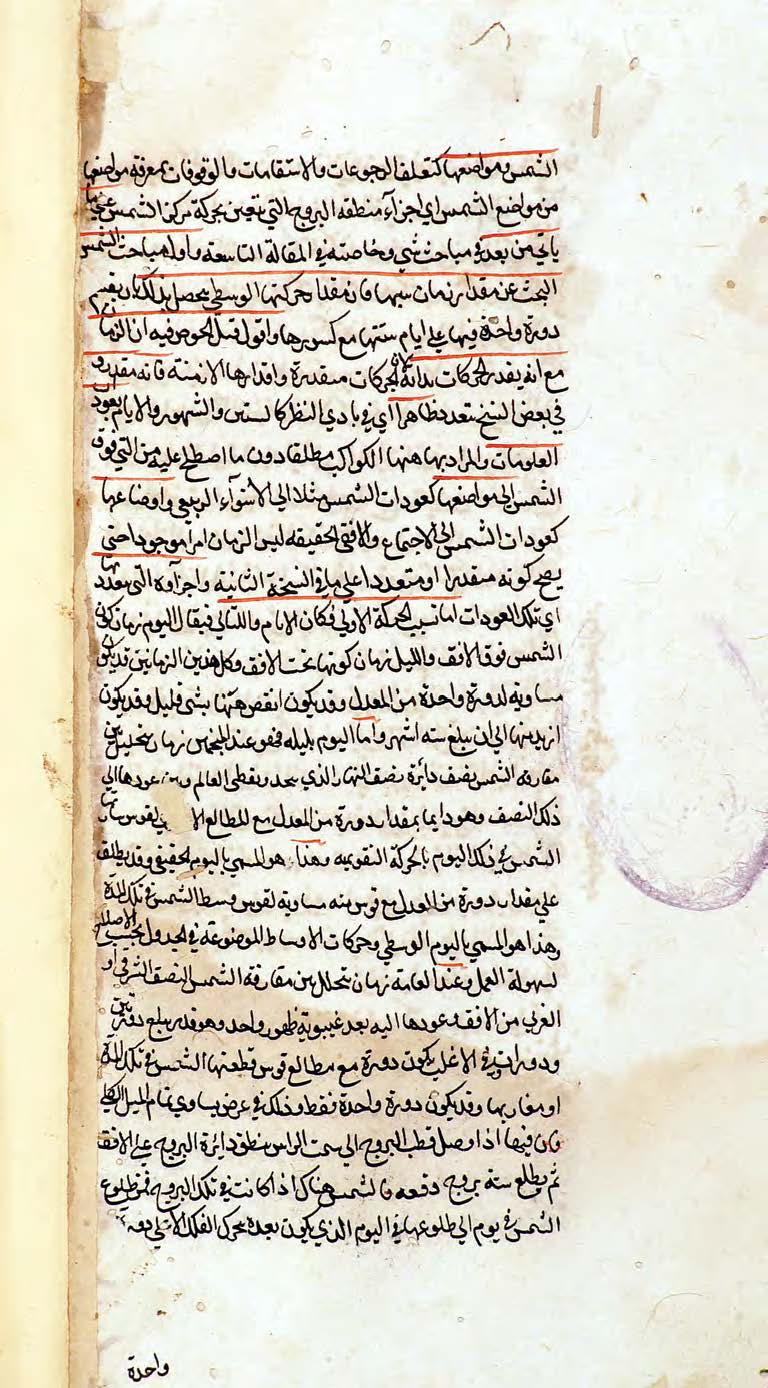 الشمس ومواضعها كتعلق الرجوعات والاستقامات والوقوفات بمعرفة مواضعها
من مواضع الشمس اي اجزاء منطقة البروج التي يتعين بحركة مركز الشمس على ما
ياتي من بعد في مباحث شتى وخاصته في المقالة التاسعة واول مباحث الشمس
البحث عن مقدار زمان سنتها فان مقدار حركتها الوسطى يحصل بذلك بان يقسم
دورة واحدة فيها على ايام سنتها مع كسورها واقول قبل الخوض فيه ان الزمان
مع انه يقدر الحركات بذاته الحركات متقدرة واقدارها الازمنة فانه مقدر و
في بعض النسخ متعدد ظاهرا اي في بادي النظر كالسنين والشهور والايام بعود
العلومات والمراد بها ههنا الكواكب مطلقا دون ما اصطلح عليه من التي فوق
الشمس الى مواضعها كعودات الشمس مثلا الى الاستواء الربيعي واوضاعها
كعودات الشمس الى الاجتماع والافق الحقيقه ليس الزمان امرا موجودا حتى
يصح كونه متقدرا او متعددا على ما في النسخة الثانية واجزاوه التي يتعدد بها
اي تلك العودات اما نسب الحركة الاولى فكان الايام والليالي فيقال اليوم زمان كون
الشمس فوق الافق والليل زمان كونها تحت الافق وكل هذين الزمانين قد يكون
مساويه لدورة واحدة من المعدل وقد يكون انقص منها بشي قليل وقد يكون
ازيد منها الى ان يبلغ سته اشهر واما اليوم بليله فهو عند المنجمين زمان يتخلل بين
مفارقه الشمس نصف دائرة نصف النهار الذي يحد بقطبي العالم وبين عودها الى
ذلك النصف وهو دايما بمقدار دورة من المعدل مع المطالع لقوس سارتها
الشمس في ذلك اليوم بالحركة التقويميه وهذا هو المسمى باليوم الحقيقي وقد يطلق
على مقدار دورة من المعدل مع قوس منه مساوية لقوس وسط الشمس في تلك المدة
وهذا هو المسمى باليوم الوسطي وحركات الاوساط الموضوعة في الجدول بحسب الاصطلاح
لسهولة العمل وعند العامة زمان يتخلل بين مفارقة الشمس النصف الشرقي او
الغربي من الافق وعودها اليه بعد غيبوبة ظهور واحد وهو قد يبلغ دورتين
ودورات وفي الاغلب يكون دورة مع مطالع قوس قطعتها الشمس في تلك المدة
او مغاربها وقد يكون دورة واحدة فقط وذلك في عرض يساوي تمام الميل الكلي
فان فيها اذا وصل قطب البروج الى سمت الراس ينطق دائرة البروج على الافق
ثم يطلع سته بروج دفعه فالشمس هناك اذا كانت في تلك البروج فمن طلوع
الشمس في يوم الى طلوعها في اليوم الذي يكون بعده يتحرك الفلك الاعلى دورة
واحدة